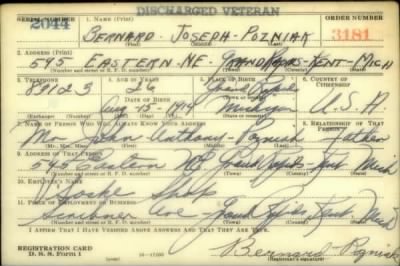 DISCHARGED VETERAN
SERIAL NUMBER 1. NAME (Print) ORDER NUMBER
2044 BERNARD JOSEPH POZNIAK 3181
(First) (Middle) (Last)
2. ADDRESS (Print)
595 EASTERN-NE. GRAND RAPIDS-KENT-MICH
(Number and street or R. F. D. number) (Town) (County) (State)
3. TELEPHONE 4. AGE IN YEARS 5. PLACE OF BIRTH 6. COUNTRY OF CITIZENSHIP
89123 26 Grand Rapids
DATE OF BIRTH (Town or county)
Aug 15-1914 Michigan U.S.A.
(Exchange) (Number) (Mo.) (Day) (Yr.) (State or country)
7. NAME OF PERSON WHO WILL ALWAYS KNOW YOUR ADDRESS 8. RELATIONSHIP OF THAT PERSON
Mr Anthony-Pozniak Father
(Mr., Mrs., Miss) (First) (Middle) (Last)
9. ADDRESS OF THAT PERSON
595 Eastern NE Grand Rapids-Kent Mich
(Number and street or R. F. D. number) (Town) (County) (State)
10. EMPLOYER'S NAME
11. PLACE OF EMPLOYMENT OR BUSINESS
Scribner Ave Grand Rapids Kent Mich
(Number and street or R. F. D. number) (Town) (County) (State)
I AFFIRM THAT I HAVE VERIFIED ABOVE ANSWERS AND THAT THEY ARE TRUE.
REGISTRATION CARD
D. S. S. Form 1 Bernard Pozniak
(Registrant's signature)